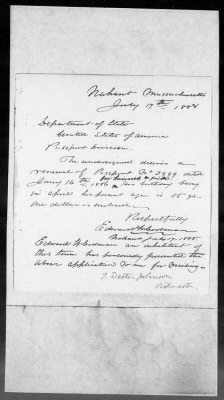 Nahant Massachusetts
July 17th 1888
Department of State
United States of America
Passport Division.
The undersigned desires a
renewal of Passport No 2999 dated
16th 1886 for himself & wife his birthday being
in April his present age is 58 yrs
One dollar is enclosed.
Respectfully
Edward
Nahant July 17. 1888
Edward an inhabitant of
this town has personally presented the
above application to me for mailing—
J. Johnson
Postmaster